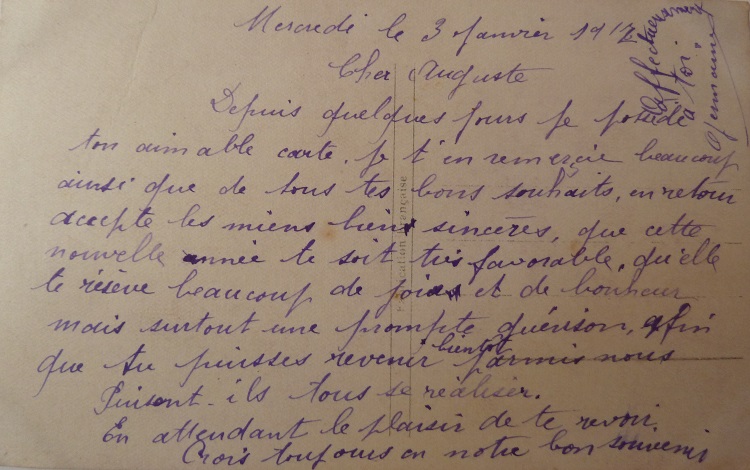 Mercredi le 3 Janvier 1917
Cher Auguste
Depuis quelques jours je possède
ton aimable carte. Je t'en remerçie beaucoup
ainsi que de tous tes bons souhaits, en retour
accepte les miens bien sincères, que cette
nouvelle année te soit très favorable, qu'elle
te réseve beaucoup de joies et de bonheur
mais surtout une prompte guérison, afin
que tu puisses revenir bientôt parmis nous
Puisent-ils tous se réaliser.
En attendant le plaisir de te revoir.
Crois toujours en notre bon souvenir
à toi
Germaine
cation française